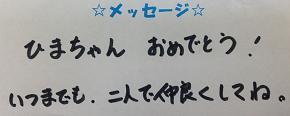 ☆メッセージ☆
ひまちゃん おめでとう!
いつまでも、二人で仲良くしてね。